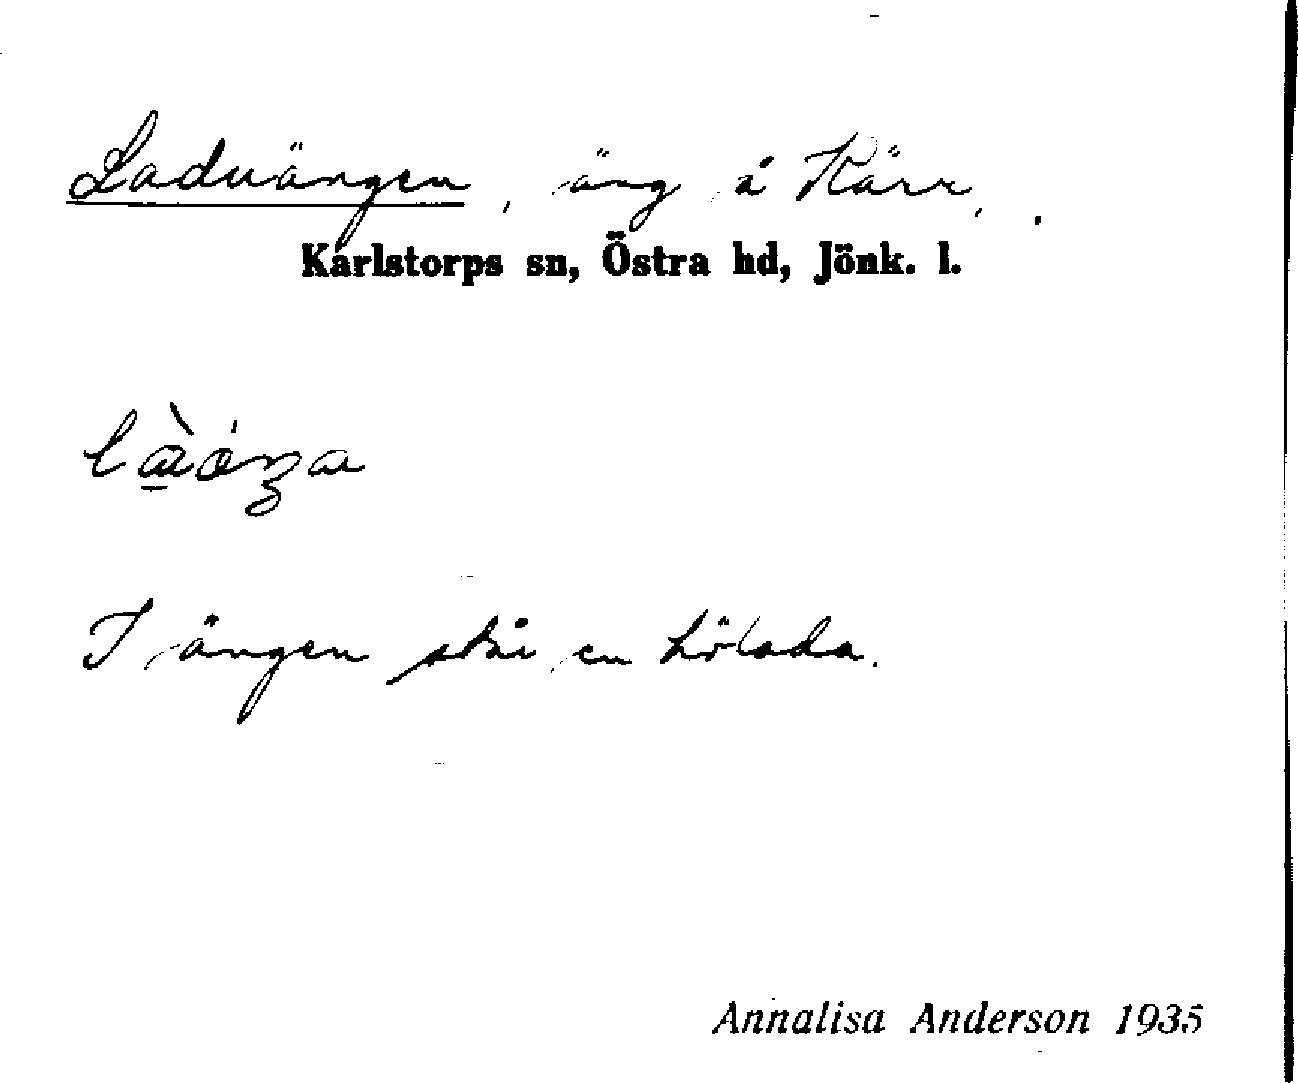 Laduängen, äng å Kärr.
Karlstorps sn, Östra hd, Jönk. l.
I ängen står en hölada.
Annalisa Anderson 1935